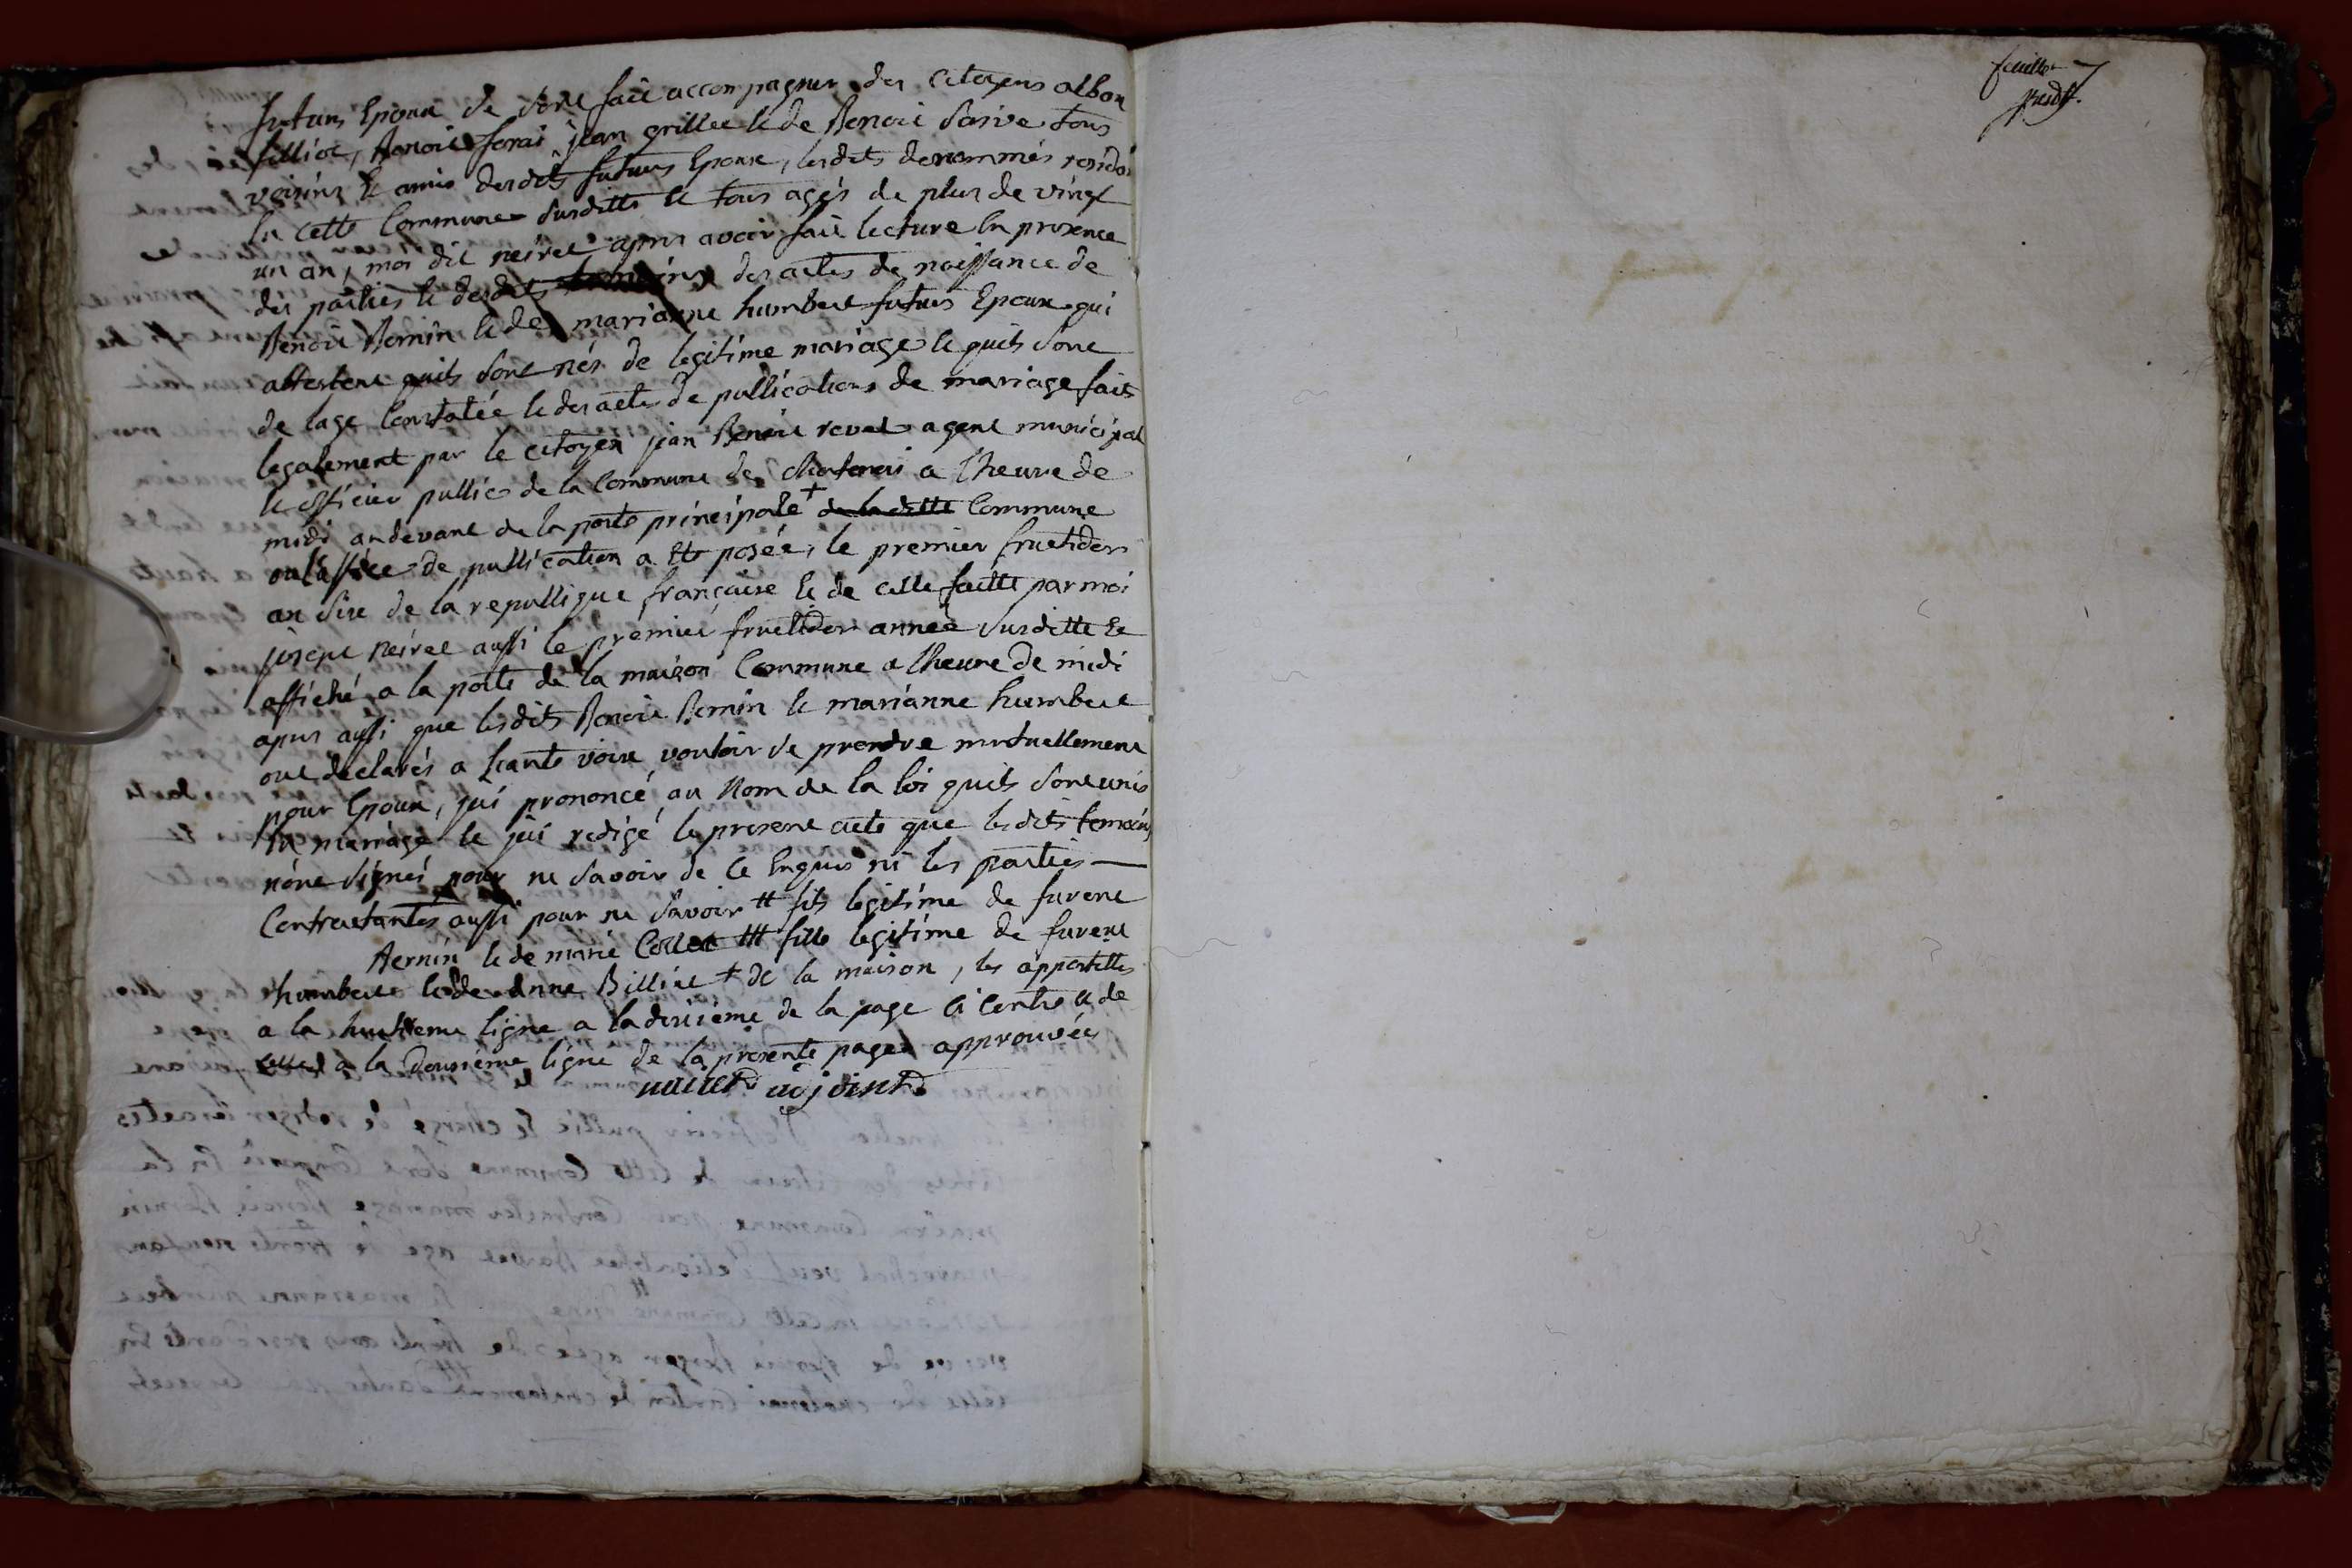 futurs Epoux se sont fait accompagner des citoyens albon
filliot, Benoit forai jean grillet et de Benoit sarive tous
voisins et amis desdits futurs Epoux, lesdits denommés résidₛ
En cette Commune susditte et tous agés de plus de vingt
un an, moi dit neiret apres avoir fait lecture En presence
des parties et desdits temoins des actes de naissance de
Benoit Bernin et de marianne humbert futurs Epoux qui
attestent quils sont nés de legitime mariage et quils sont
de lage Constatée et des actes de publications de mariage faits
legalement par le citoyen jean Benoit revet agent municipal
et officier public de la Commune de chatenai a l'heure de
midi au devant de la porte principale + de la ditte Commune
ou laffice de publication a Eté posée, le premier fructidor
an sixe de la republique française et de celle faitte par moi
joseph neiret aussi le premier fructidor année susditte Et
affiché a la porte de la maison Commune a lheure de midi
apres aussi que lesdits Benoit Bernin et marianne humbert
ont declarés a haute voix vouloir se prendre mutuellement
pour Epoux, jai prononcé au Nom de la loi quils sont unis
En mariage et jai redigé le present acte que lesdits temoins
nont signés pour ne savoir de ce Enquis ni les parties
Contractantes aussi pour ne savoir ++ fils legitime de furent
Bernin et de marie Collet +++ fille legitime de furent
humbert et de anne Billiet + de la maison, les appostilles
a la huitieme ligne a la dixième de la page ci contre et de
celle a la douxième ligne de la presente page approuvées
neiret adjoint
feuillet 7